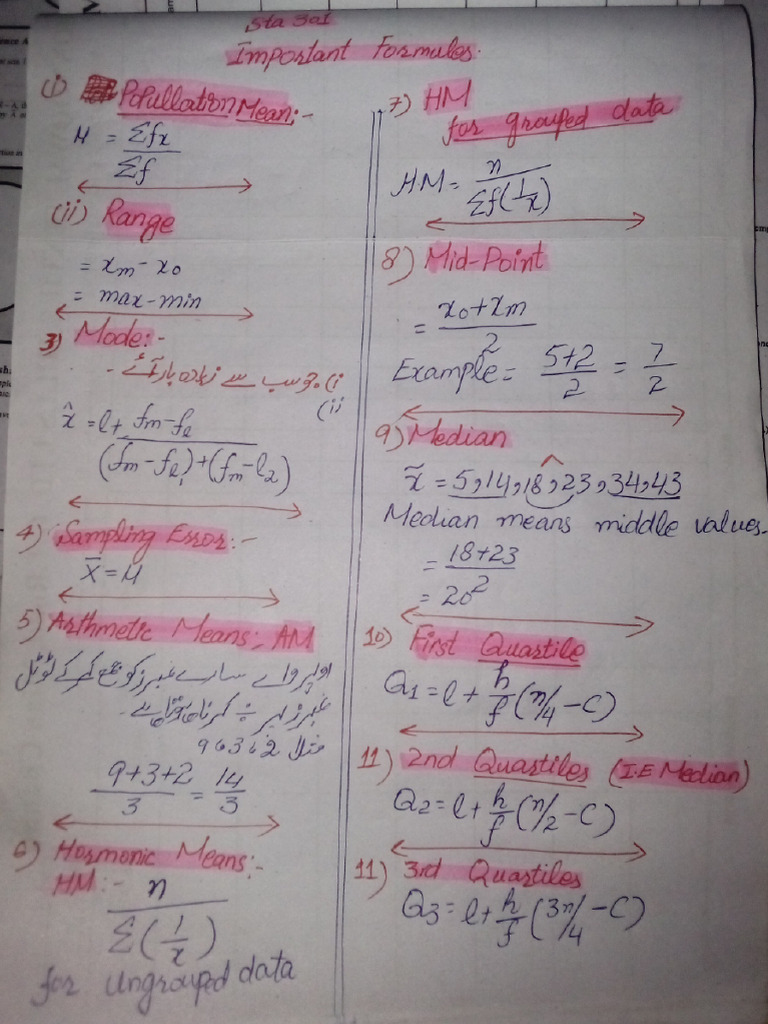 Sta 301
Important Formules.
(i) Popullation Mean:-
μ = Σfx / Σf
(ii) Range
= xm - x0
= max - min
3) Mode:-
i) جو سب سے زیادہ بار آئے -
(ii
x̂ = l + fm - fl / (fm - fl1) + (fm - l2)
4) Sampling Error:-
X̄ = μ
5) Arthmetic Means:, AM
سارے نمبرز کو جمع کر کے ٹوٹل
نمبرز پر ÷ کرنا ہوتا ہے -
مثلا 9 6 3 6 2
9+3+2 / 3 = 14 / 3
6) Hormonic Means:-
HM:- n / Σ(1/x)
for ungrouped data
7) HM
for grouped data
H.M = n / Σf(1/x)
8) Mid-Point
= x0 + xm / 2
Example = 5+2 / 2 = 7 / 2
9) Median
x̃ = 5,14,18,23,34,43
Median means middle values.
= 18+23 / 2
= 20
10) First Quartile
Q1 = l + h/f (n/4 - C)
11) 2nd Quartiles (I.E Median)
Q2 = l + h/f (n/2 - C)
11) 3rd Quartiles
Q3 = l + h/f (3n/4 - C)